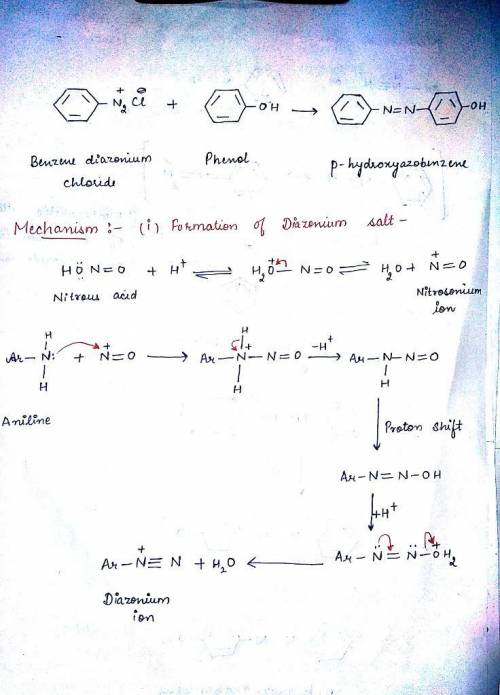 N₂⁺ Cl⁻ + OH → N=N OH
Benzene diazonium chloride Phenol p-hydroxyazobenzene
Mechanism :- (i) Formation of Diazonium salt -
HÖ N=O + H⁺ ⇌ H₂O⁺- N=O ⇌ H₂O + N⁺=O
Nitrous acid Nitrosonium ion
H H
Ar-N: + N⁺=O → Ar-N⁺-N=O -H⁺→ Ar-N-N=O
H H H
Aniline
Proton shift
Ar-N=N-OH
+H⁺
Ar-N⁺≡N + H₂O ← Ar-N̈=N̈-O⁺H₂
Diazonium
ion